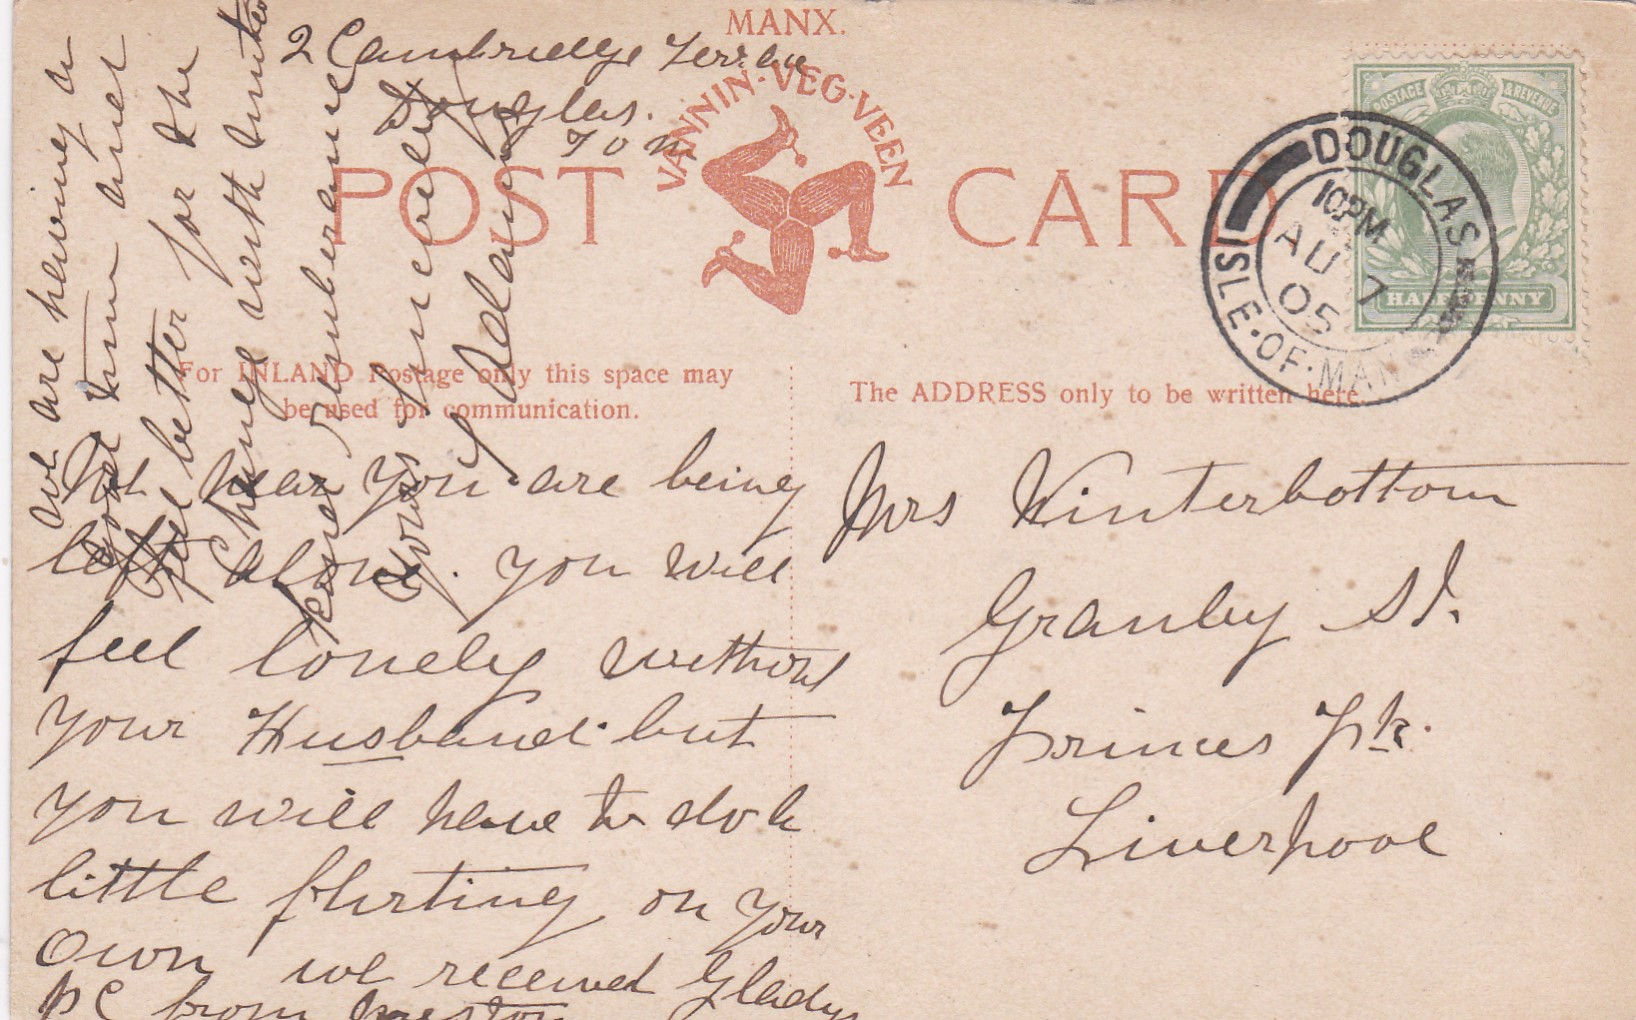 MANX.
VANNIN·VEG·VEEN
POST CARD
2 Cambridge Terrace
Douglas.
I O M
POSTAGE & REVENUE
HALFPENNY
DOUGLAS
10PM
AU 7
05
ISLE·OF·MAN
For INLAND Postage only this space may
be used for communication.
The ADDRESS only to be written here.
We hear you are being
left alone. you will
feel lonely without
your Husband but
you will have to do a
little flirting on your
own we received Gladys
PC from Preston
we are having a
good time and
feel better for the
change with united
kind remembrances
Yours sincerely
Mrs Winterbottom
Granby St.
Princes Pk.
Liverpool